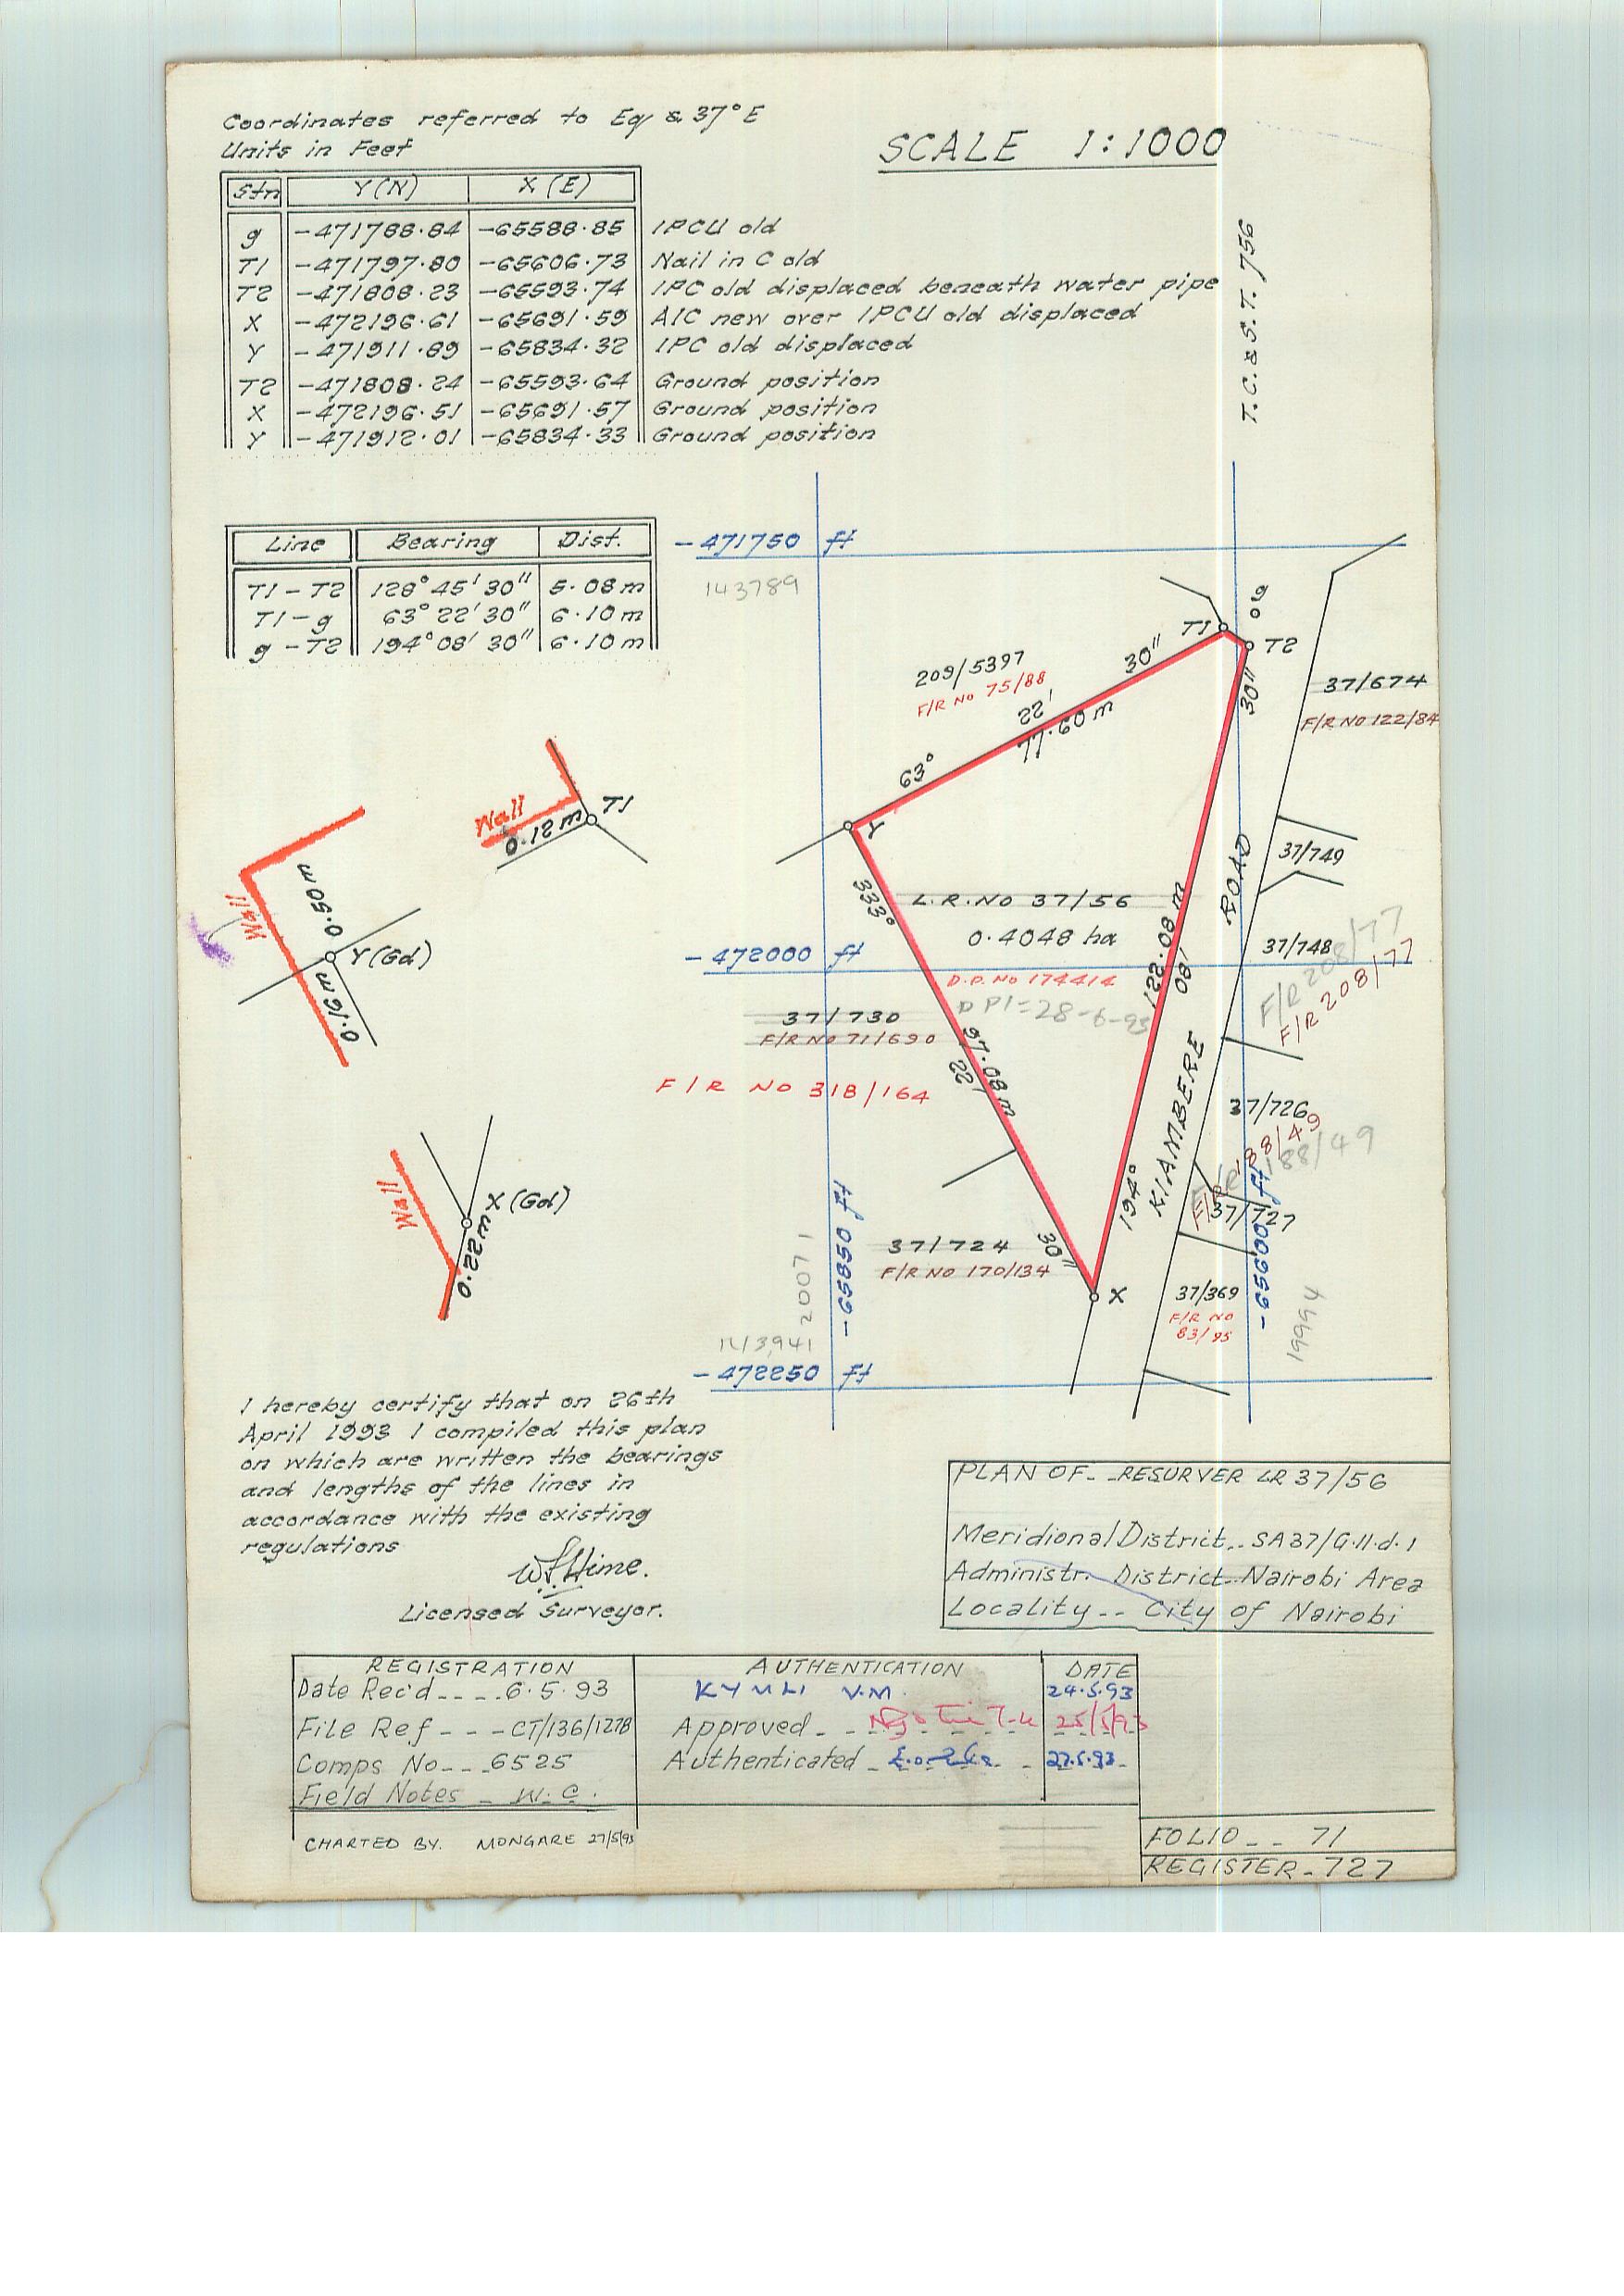 Coordinates referred to Eq & 37° E
Units in Feet
SCALE 1:1000
T.C. & S.T. 756
Stn Y(N) X(E)
g -471788.84 -65588.85 IPCU old
T1 -471797.80 -65606.73 Nail in C old
T2 -471808.23 -65593.74 IPC old displaced beneath water pipe
X -472196.61 -65691.59 AIC new over IPCU old displaced
Y -471911.89 -65834.32 IPC old displaced
T2 -471808.24 -65593.64 Ground position
X -472196.51 -65691.57 Ground position
Y -471912.01 -65834.33 Ground position
Line Bearing Dist.
T1-T2 128° 45' 30" 5.08 m
T1-g 63° 22' 30" 6.10 m
g-T2 194° 08' 30" 6.10 m
-471750 ft
143789
g
T1
T2
209/5397
F/R No 75/88
63° 22' 30"
77.60 m
30"
37/674
F/R NO 122/84
Wall
T1
0.12 m
Y
Wall
0.50 m
Y(Gd)
0.16 m
333° 22' 30"
97.08 m
L.R. NO 37/56
0.4048 ha
D.P. No 174414
DP1=28-6-93
122.08 m
194° 08'
KIAMBERE ROAD
37/749
37/748
F/R 208/77
F/R 208/77
-472000 ft
37/730
F/R NO 71/690
F/R NO 318/164
37/726
F/R 188/49
188/49
37/727
Wall
X(Gd)
0.22 m
37/724
F/R NO 170/134
X
37/369
F/R NO
83/95
-65850 ft
20071
-65600 ft
19994
143,941
-472250 ft
I hereby certify that on 26th
April 1993 I compiled this plan
on which are written the bearings
and lengths of the lines in
accordance with the existing
regulations
W.S. Hime.
Licensed Surveyor.
PLAN OF-_RESURVER LR 37/56
Meridional District.. SA37/G.11.d.1
Administr. District..Nairobi Area
Locality-- City of Nairobi
REGISTRATION AUTHENTICATION DATE
Date Rec'd----6.5.93 KYULI V.M. 24.5.93
File Ref---CT/136/1278 Approved 25/5/93
Comps No---6525 Authenticated 27.5.93
Field Notes - W.C.
CHARTED BY. MONGARE 27/5/93
FOLIO-- 71
REGISTER-727